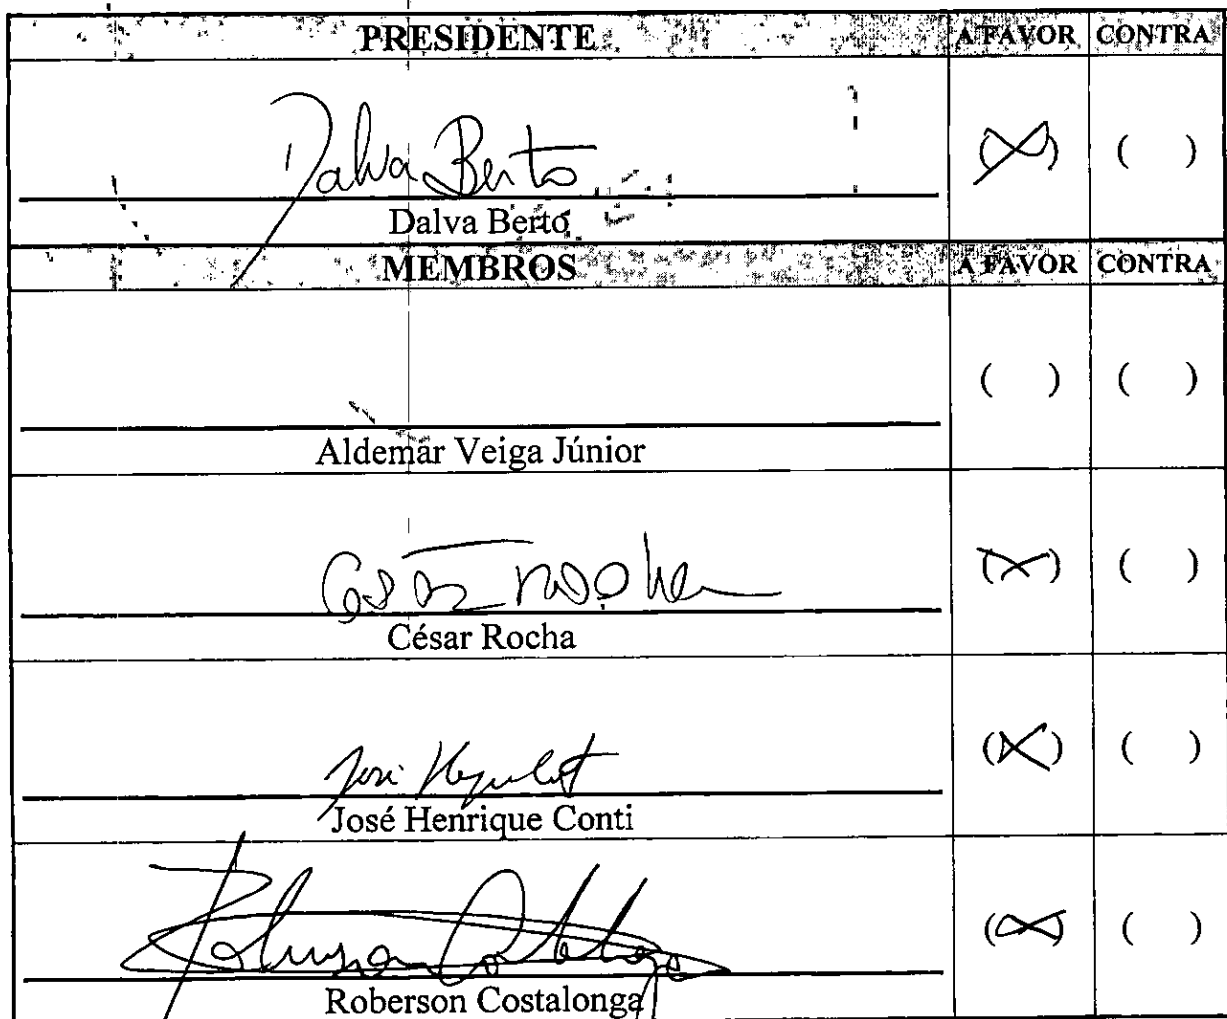 PRESIDENTE A FAVOR CONTRA
Dalva Berto (X) ( )
Dalva Berto
MEMBROS A FAVOR CONTRA
( ) ( )
Aldemar Veiga Júnior
(X) ( )
César Rocha
(X) ( )
José Henrique Conti
(X) ( )
Roberson Costalonga